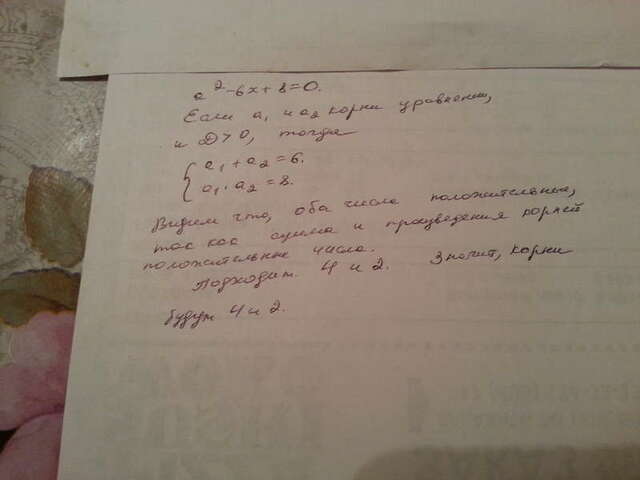 a²-6x+8=0.
Если a₁ и a₂ корни уравнения,
и D>0, тогда
{a₁+a₂=6.
a₁·a₂=8.
Видим что, оба числа положительные,
так как сумма и произведения корней
положительные числа.
Подходит 4 и 2. Значит, корни
будут 4 и 2.